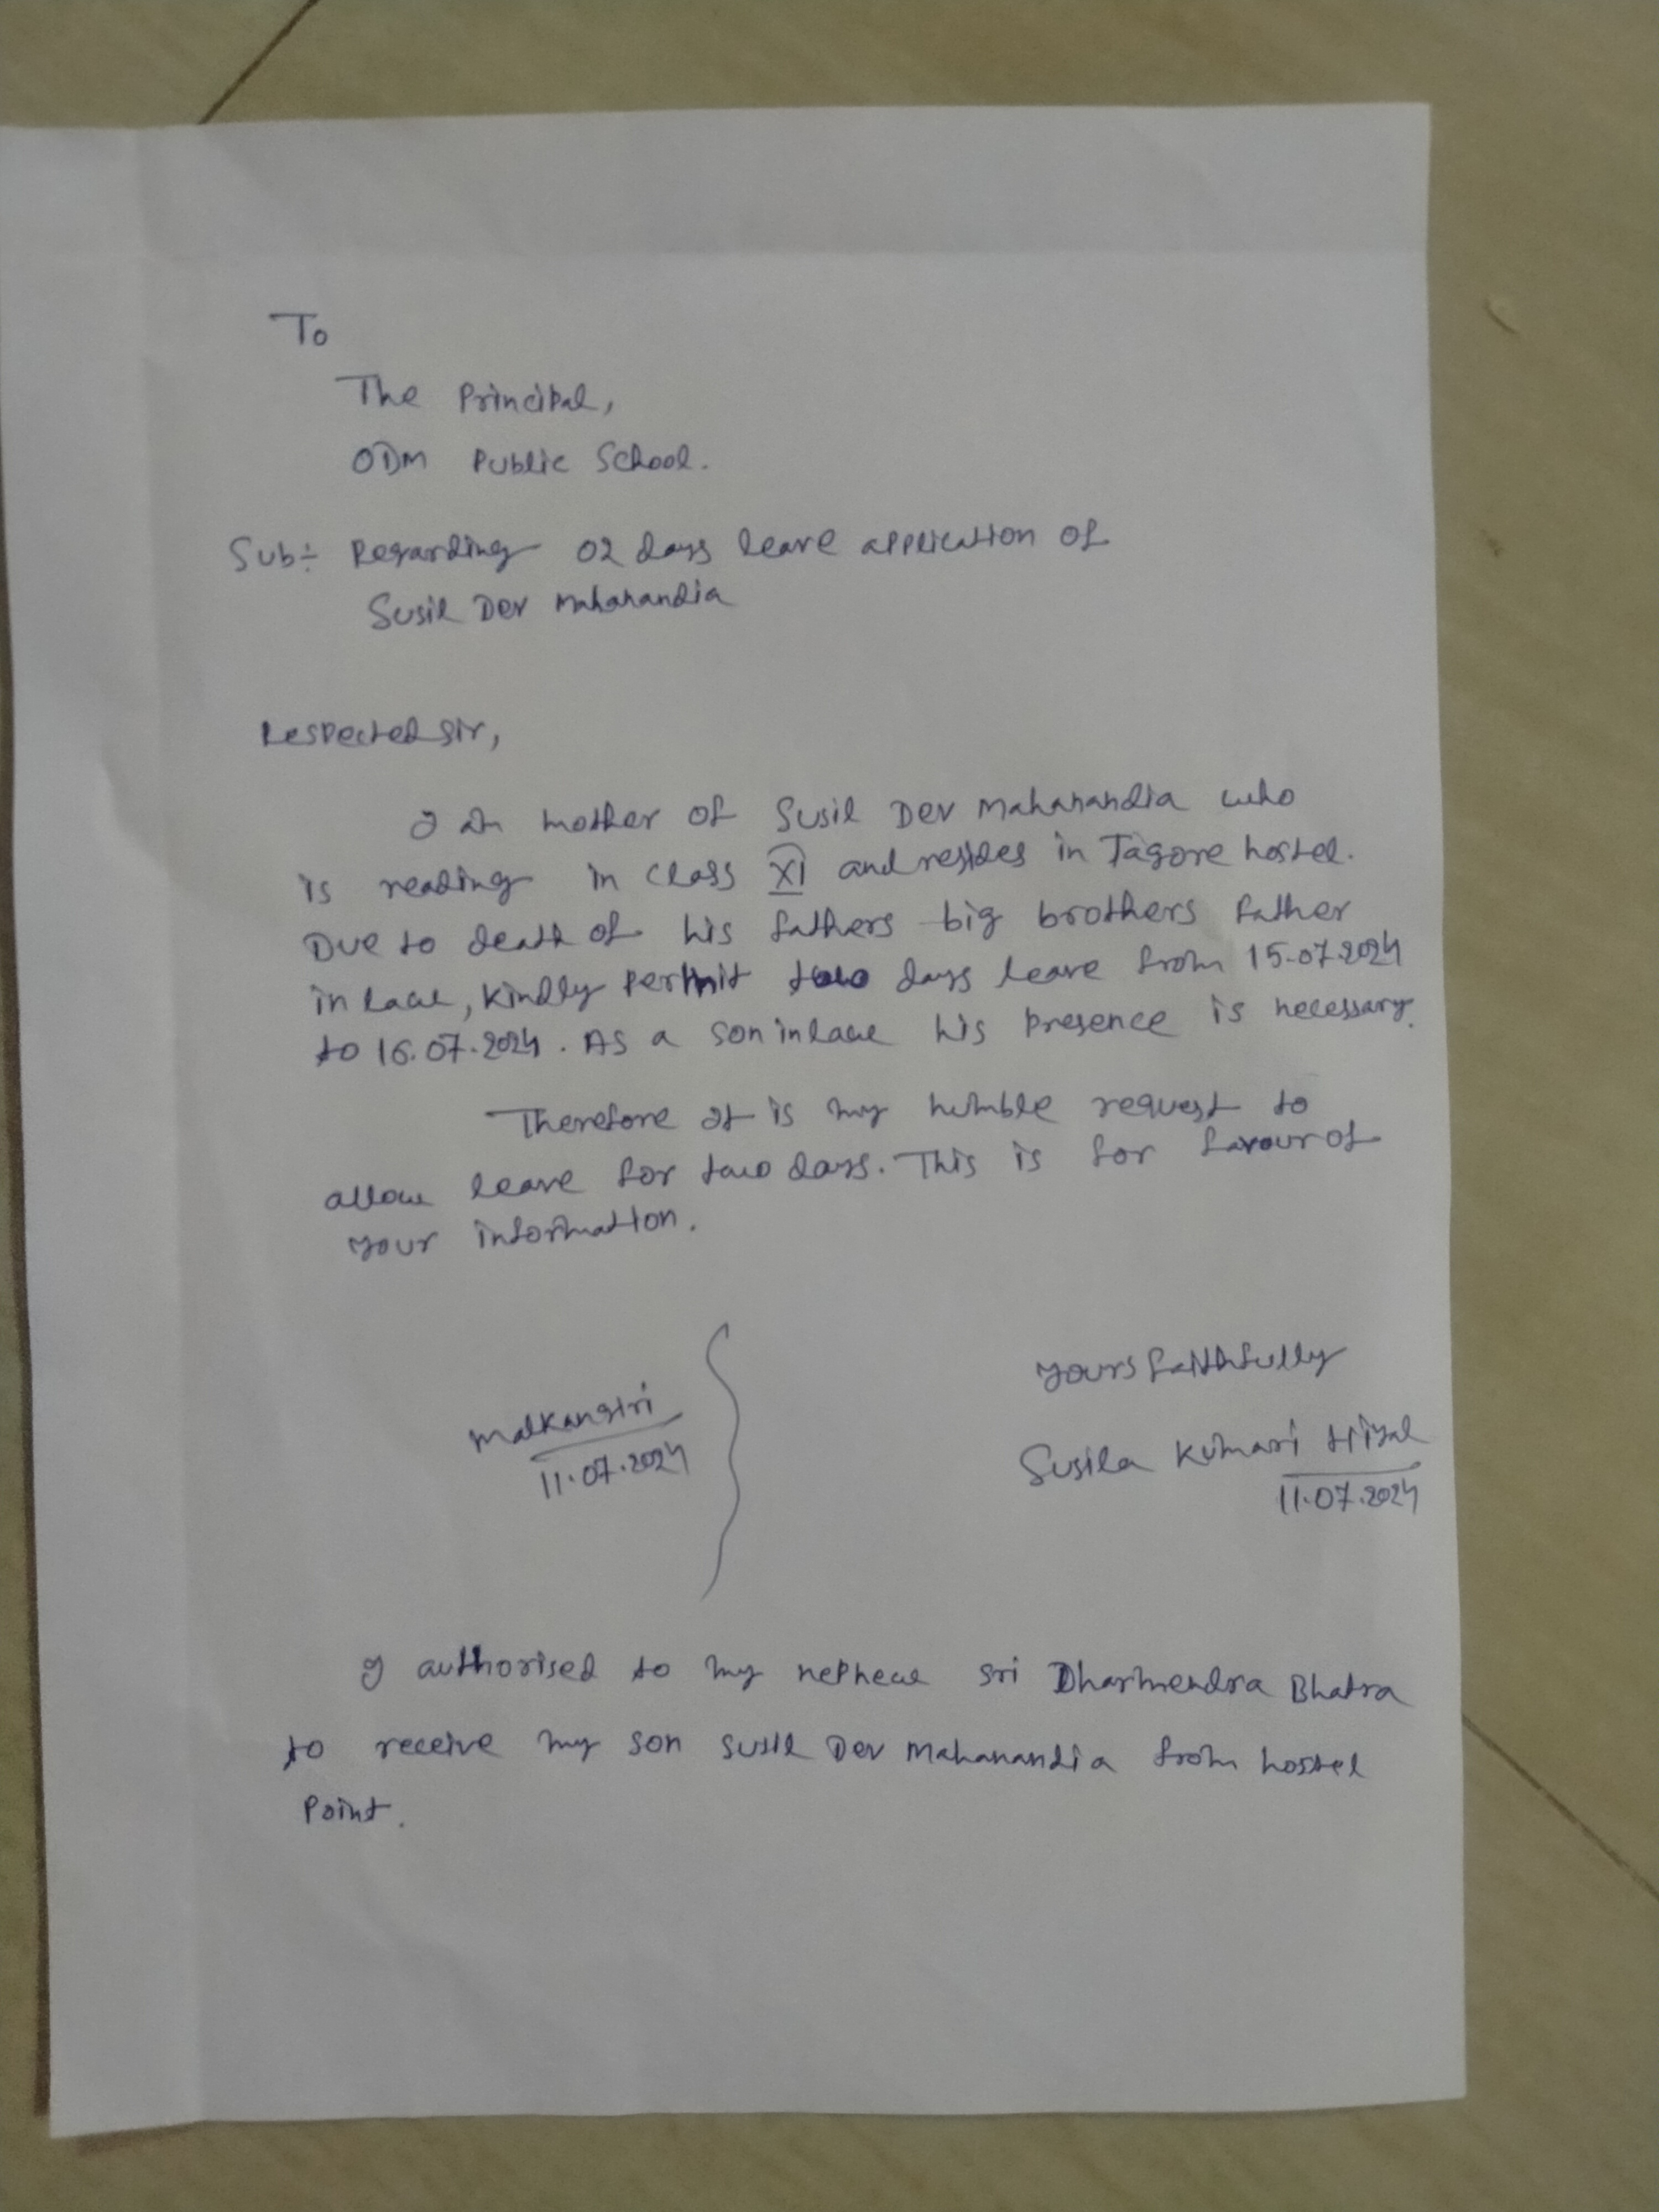 To
The Principal,
ODM Public School.
Sub:- Regarding 02 days leave application of
Susil Dev Mahanandia
Respected Sir,
I am mother of Susil Dev Mahanandia who
is reading in class XI and resides in Tagore hostel.
Due to death of his fathers big brothers father
in law, kindly permit two days leave from 15.07.2024
to 16.07.2024. As a son in law his presence is necessary.
Therefore it is my humble request to
allow leave for two days. This is for favour of
your information.
Yours faithfully
Malkangiri
11.07.2024
Susila Kumari
11.07.2024
I authorised to my nephew Sri Dharmendra Bhatra
to receive my son Susil Dev Mahanandia from hostel
Point.